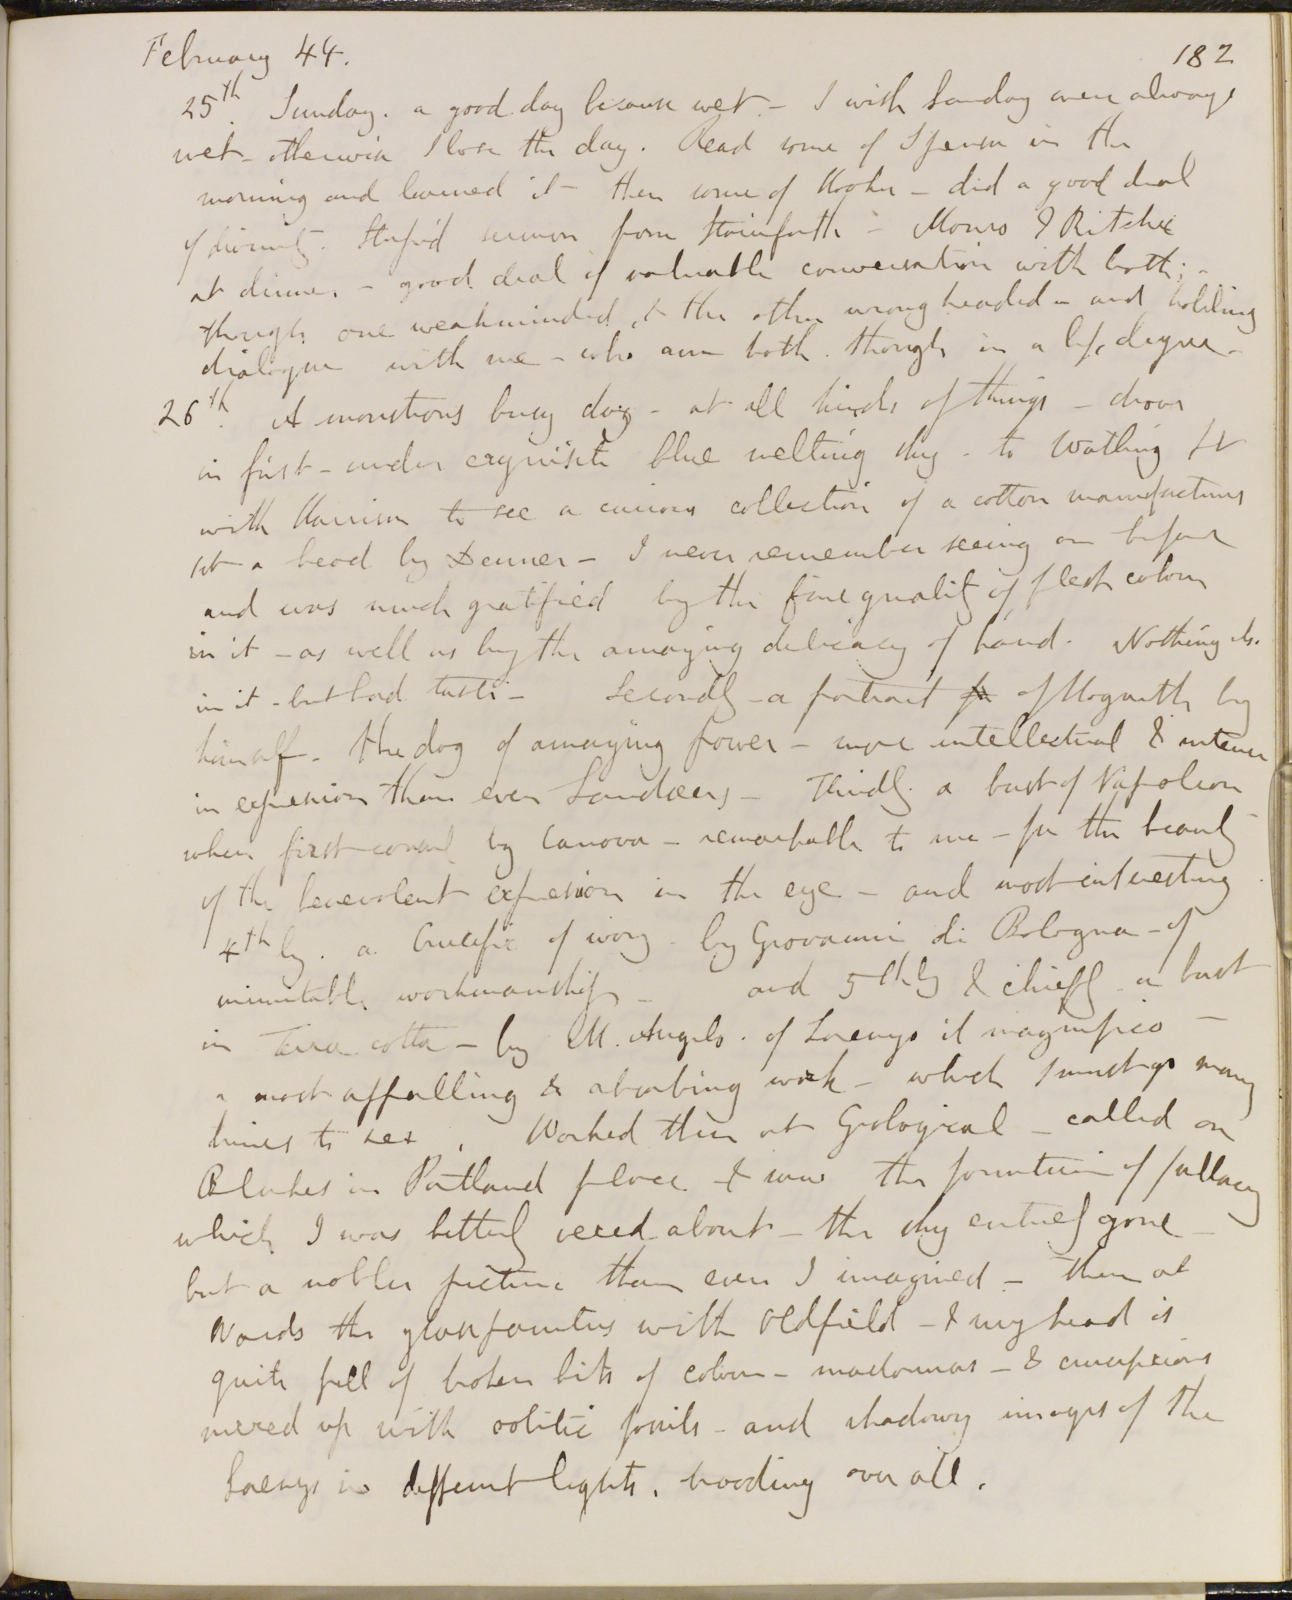 February 44.
182
25th. Sunday. a good day because wet. - I wish Sunday were always
wet - otherwise I lose the day. Read some of Spenser in the
morning and learned it - then some of Hooker - did a good deal
of divinity. Stupid sermon from Stainforth - Monro & Ritchie
at dinner. - good deal of valuable conversation with both; -
though one weakminded, & the other wrongheaded - and holding
dialogue with me - who am both. though in a less degree -
26th. A monstrous busy day - at all kinds of things - drove
in first - under exquisite blue melting sky - to Watling St
with Harrison to see a curious collection of a cotton manufacturers
1st a head by Denner - I never remember seeing one before
and was much gratified by the fine quality of flesh colour
in it - as well as by the amazing delicacy of hand. Nothing else
in it - but bad taste - Secondly - a portrait of Hogarth by
himself - the dog of amazing power - more intellectual & intense
in expression than even Landseers - Thirdly. a bust of Napoleon
when first consul by Canova - remarkable to me - for the beauty
of the benevolent expression in the eye - and most interesting
4thly. a Crucifix of ivory - by Giovanni di Bologna - of
inimitable workmanship - and 5thly & chiefly - a bust
in Terra cotta - by M. Angelo. of Lorenzo il magnifico -
a most appalling & absorbing work - which I must go many
times to see. Worked then at Geological - called on
Blakes in Portland place & saw the fountain of fallacy
which I was bitterly vexed about - the sky entirely gone -
but a nobler picture than even I imagined - then at
Wards the glasspainters with Oldfield - & my head is
quite full of broken bits of colour - madonnas - & crucifixions
mixed up with oolitic fossils - and shadowy images of the
Lorenzo in different lights, brooding over all.